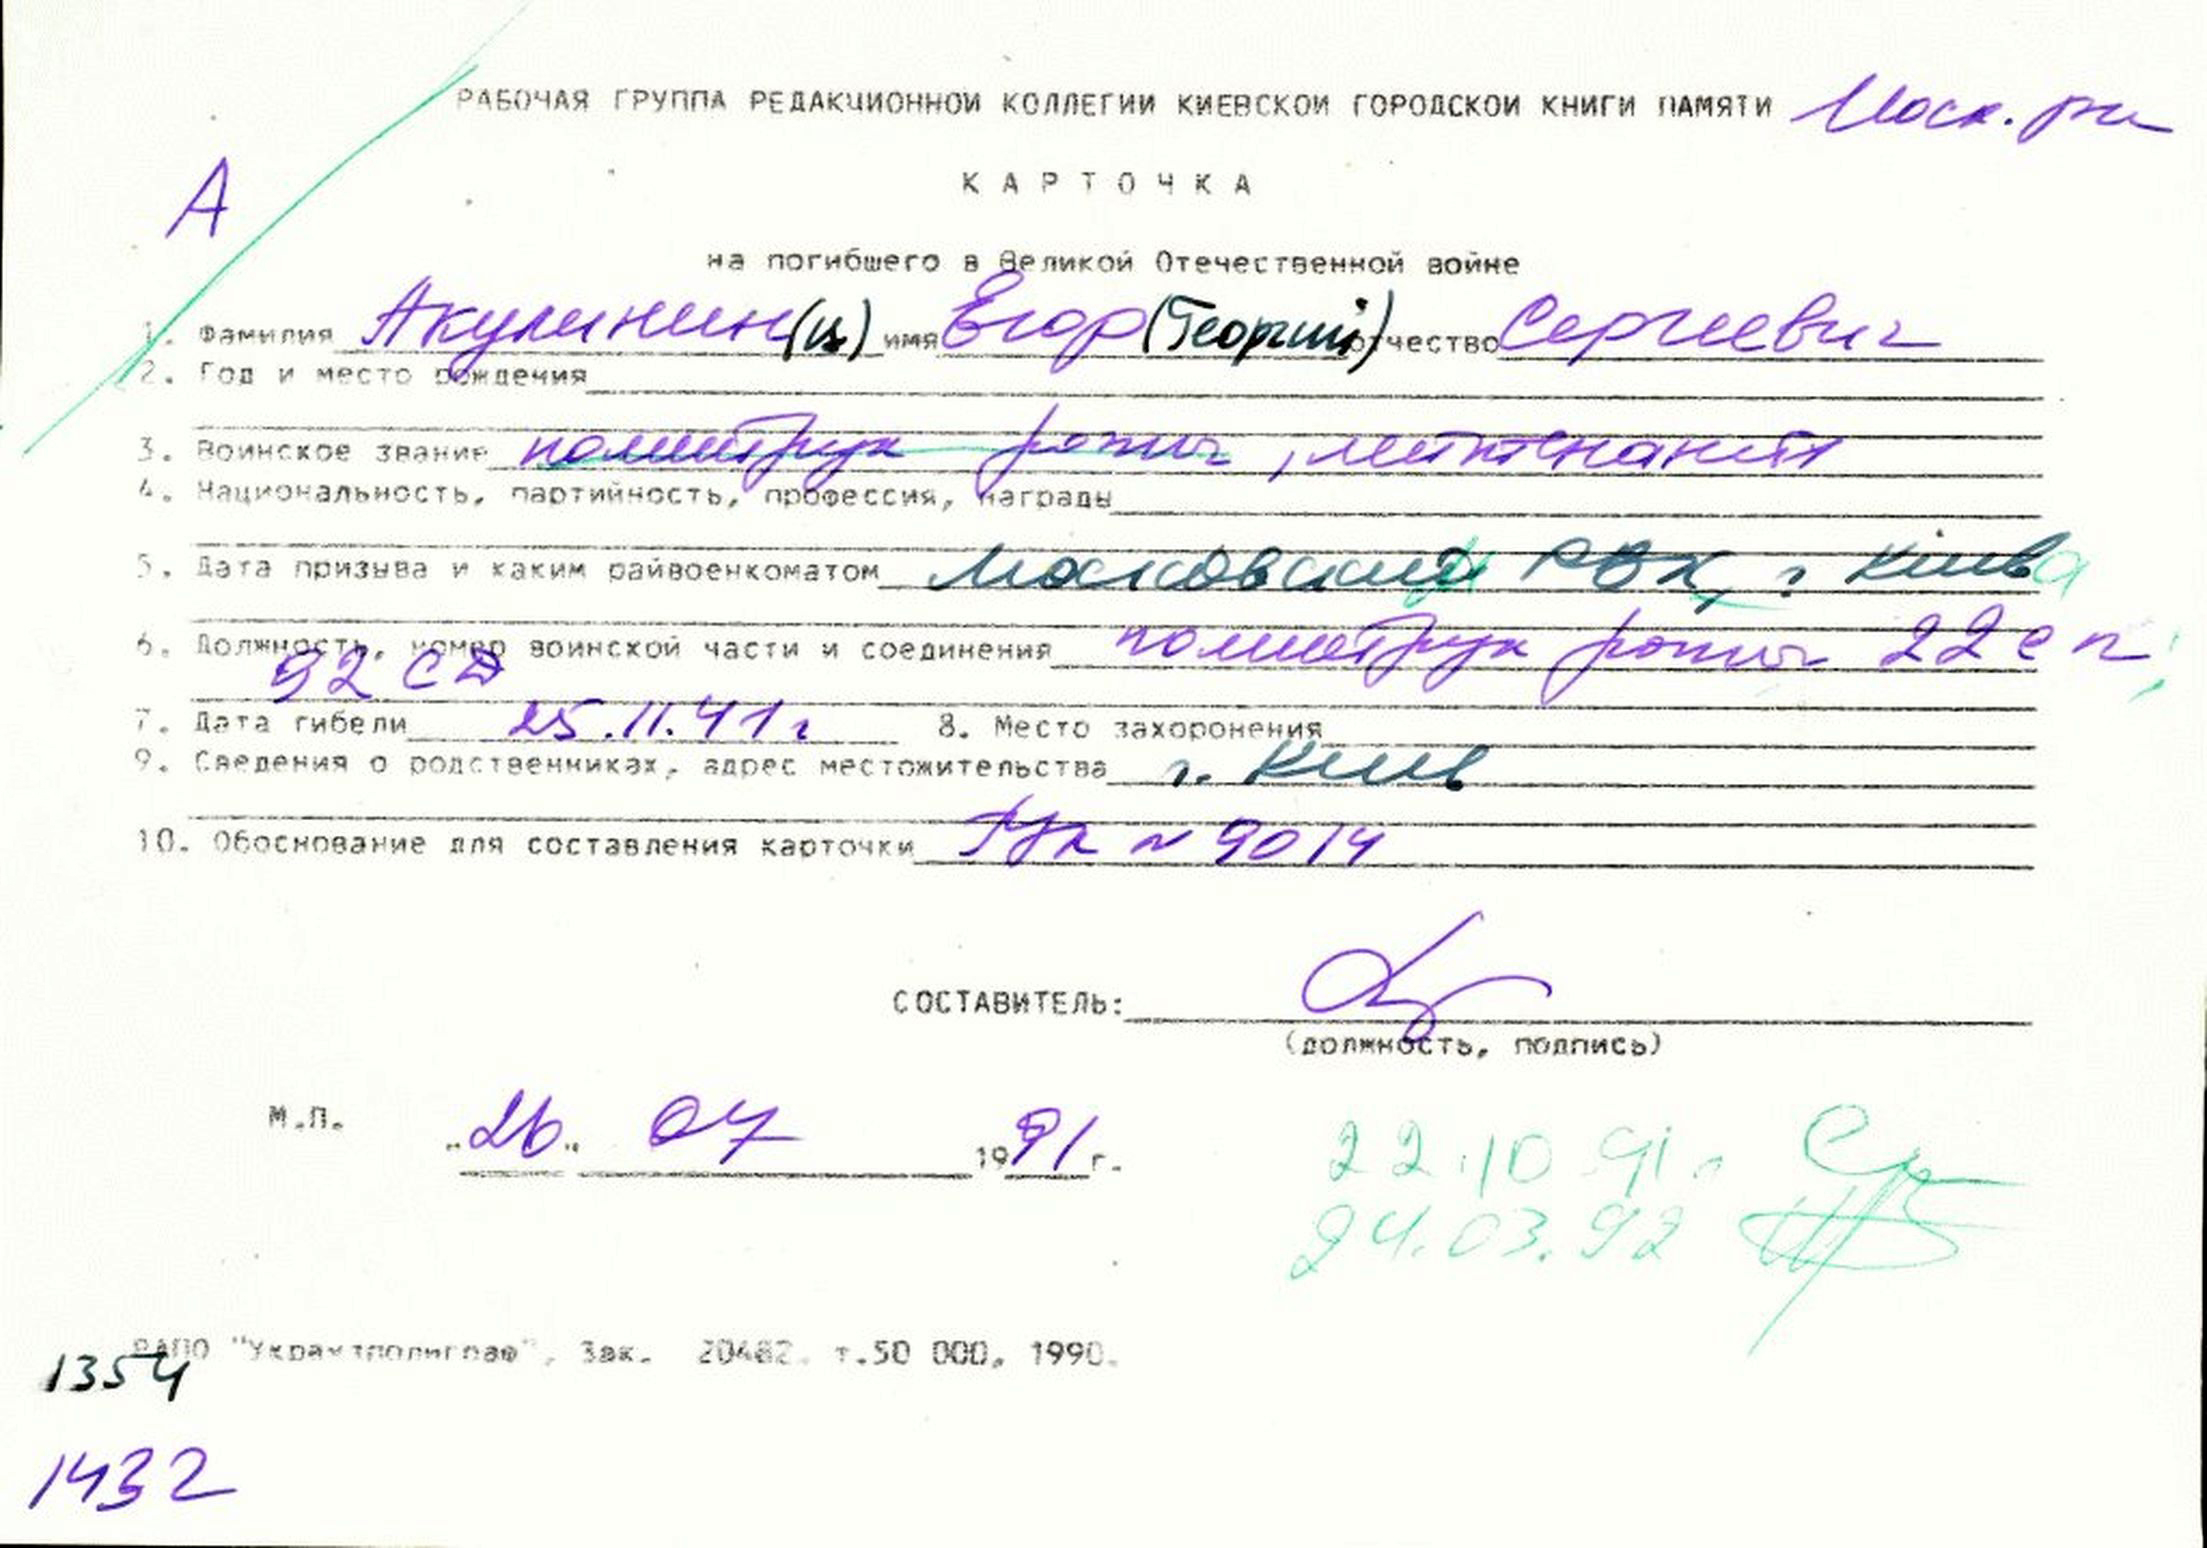 РАБОЧАЯ ГРУППА РЕДАКЦИОННОЙ КОЛЛЕГИИ КИЕВСКОЙ ГОРОДСКОЙ КНИГИ ПАМЯТИ Моск. рн
А
КАРТОЧКА
на погибшего в Великой Отечественной войне
1. Фамилия Акулинин(ш) имя Егор (Георгий) отчество Сергеевич
2. Год и место рождения
3. Воинское звание политрук роты, лейтенант
4. Национальность, партийность, профессия, награды
5. Дата призыва и каким райвоенкоматом Московский РВК, г Киева
6. Должность, номер воинской части и соединения политрук роты 22 сп,
92 СД
7. Дата гибели 25.11.41 г 8. Место захоронения
9. Сведения о родственниках, адрес местожительства г. Киев
10. Обоснование для составления карточки № 9014
СОСТАВИТЕЛЬ:
(должность, подпись)
М.П. "26" 07 1991 г.
22.10.91 г
24.03.92
РАПО "Укрвузполиграф", Зак. 20482. т.50 000, 1990.
1354
1432